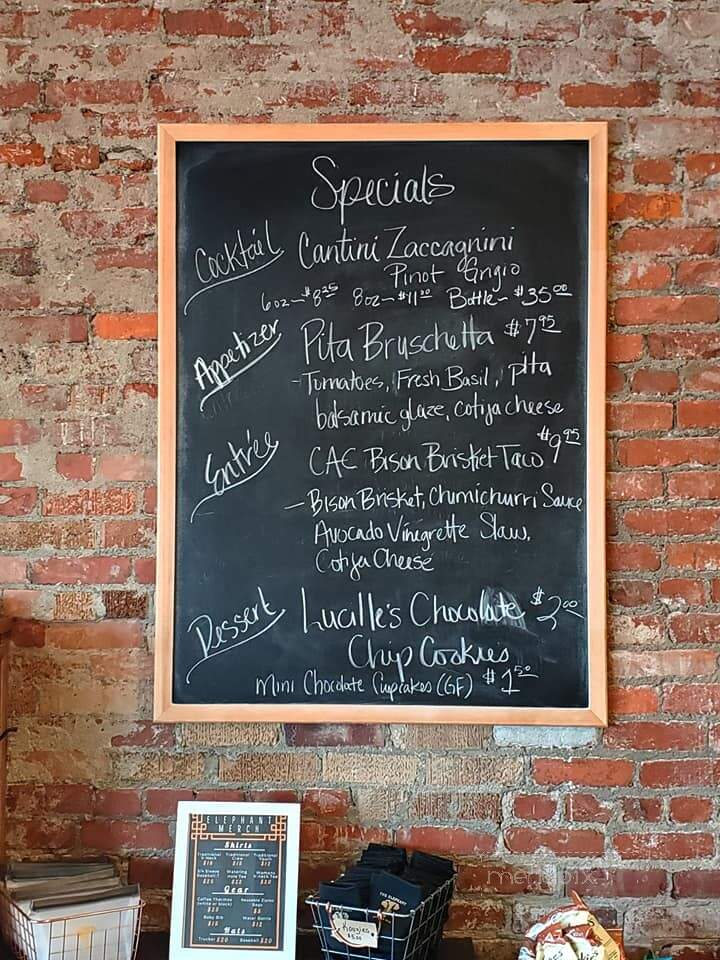 Specials
Cocktail Cantini Zaccagnini
Pinot Grigio
6oz~$8.25 8oz~$11.00 Bottle~$35.00
Appetizer Pita Bruschetta $7.95
-Tomatoes, Fresh Basil, pita
balsamic glaze, cotija cheese
Entrée CAE Bison Brisket Taco $9.95
-Bison Brisket, Chimichurri Sauce
Avocado Vinegrette Slaw,
Cotija Cheese
Dessert Lucille's Chocolate $2.00
Chip Cookies
Mini Chocolate Cupcakes (GF) $1.50
ELEPHANT
MERCH
Shirts
Gear
Hats
Trucker $20 Baseball $20
THE ELEPHANT